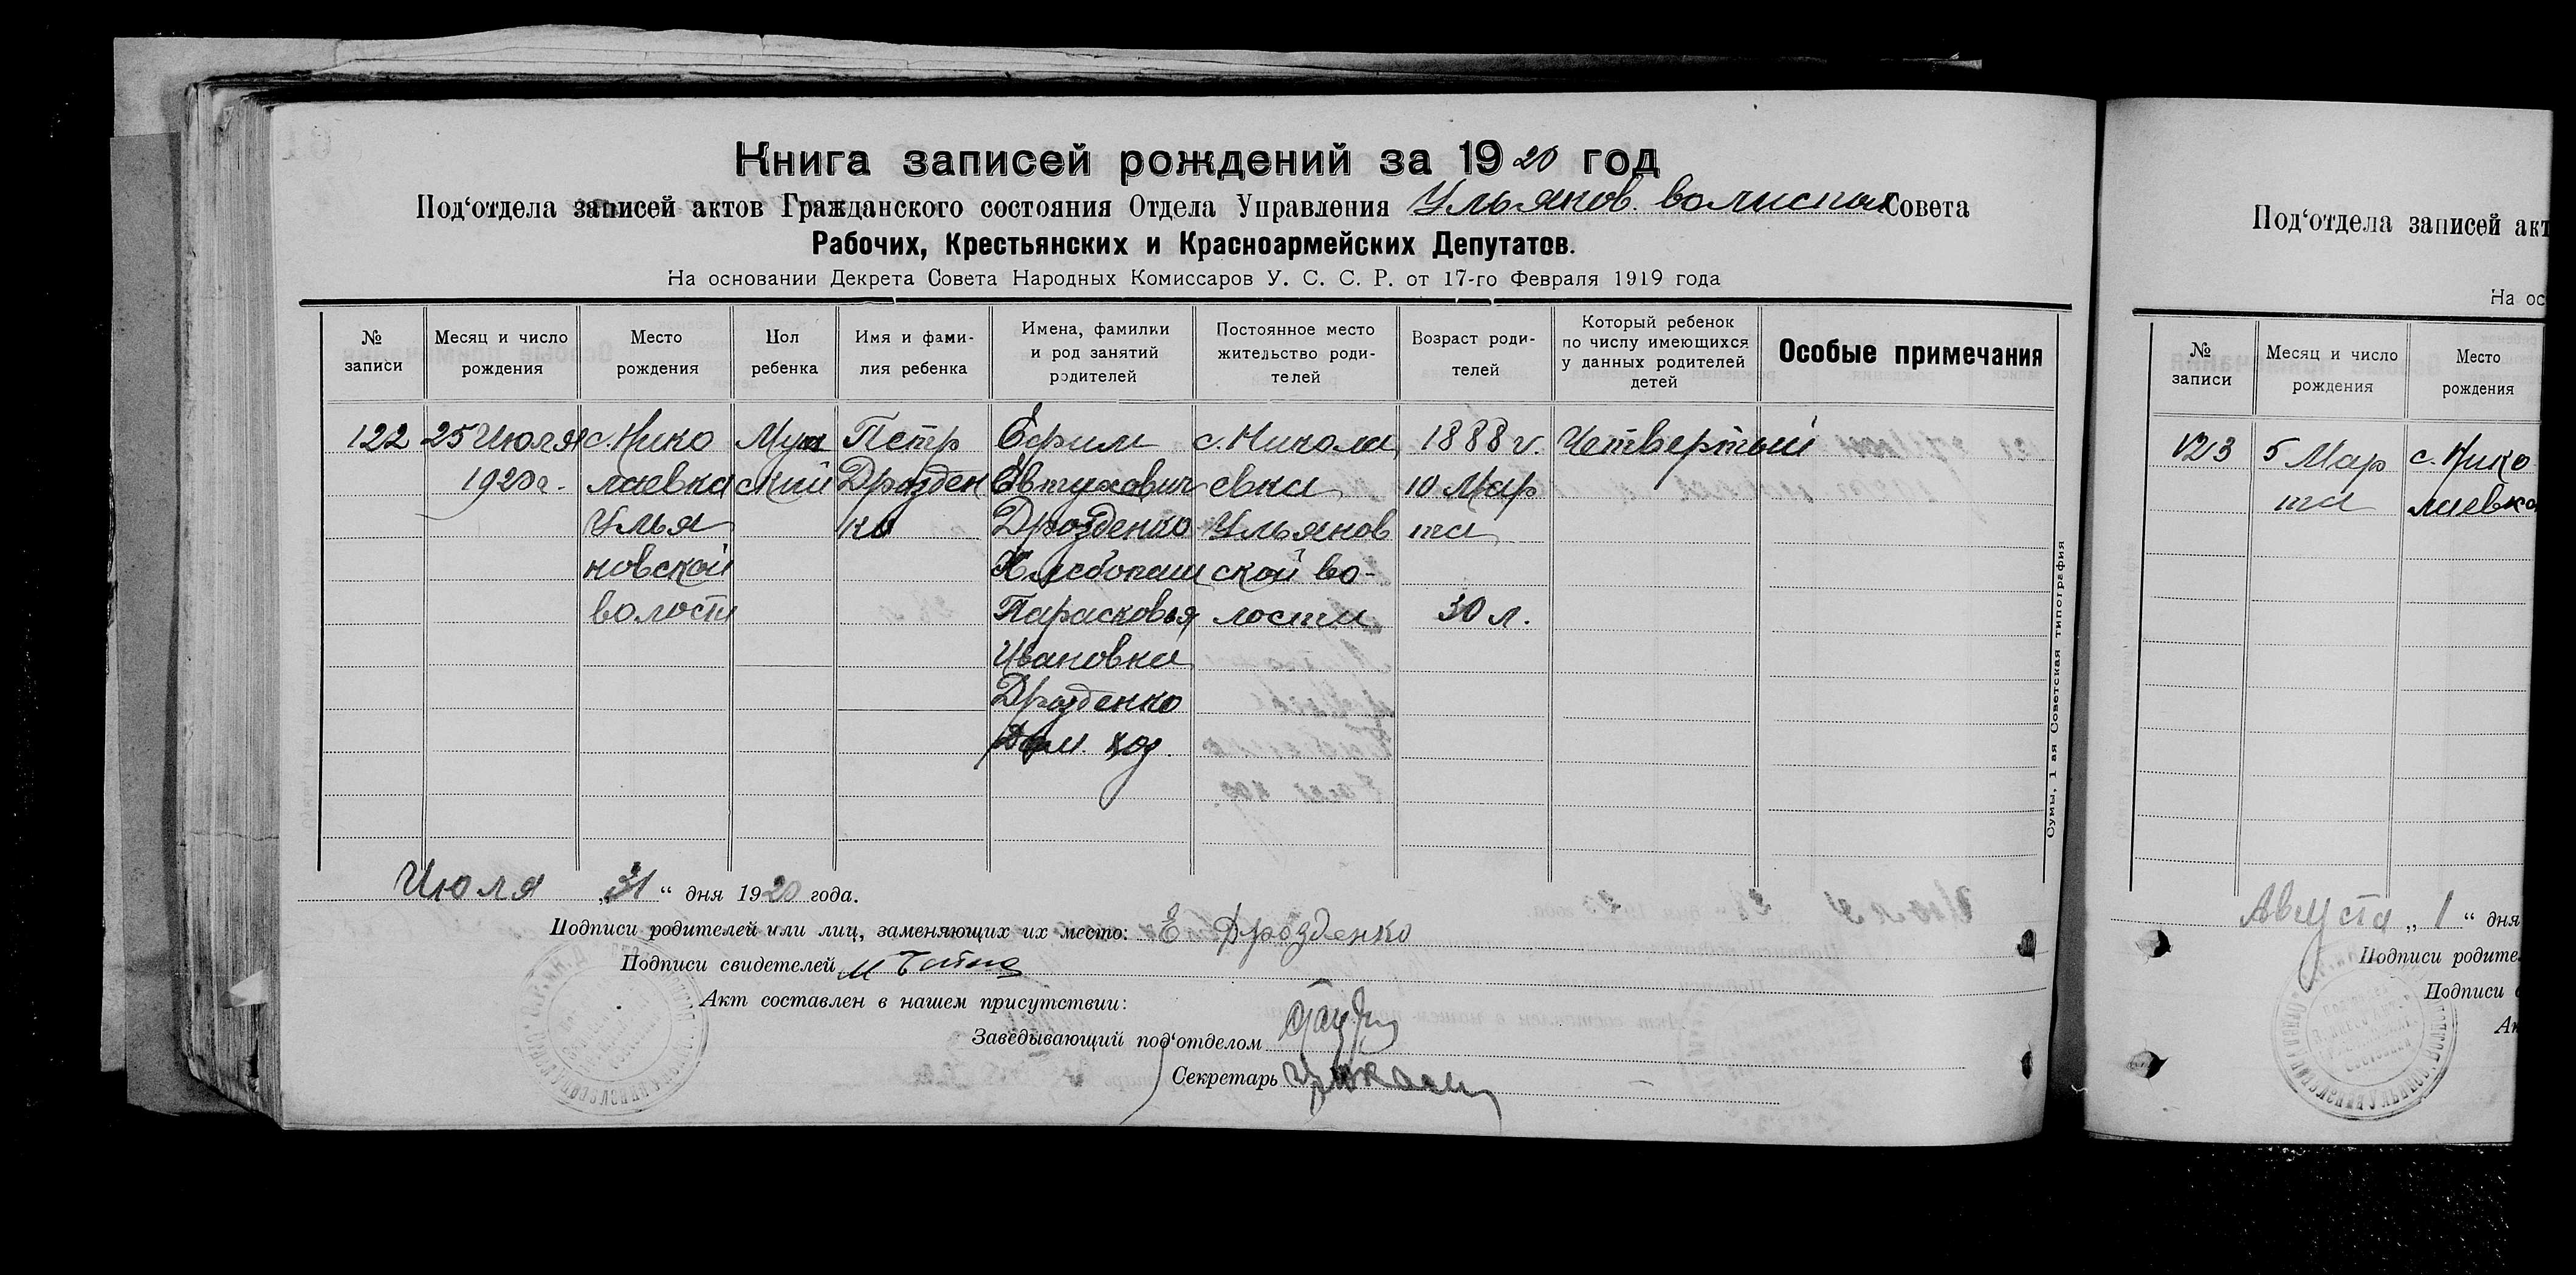 Книга записей рождений за 1920 год
Под'отдела записей актов Гражданского состояния Отдела Управления Ульянов. волисном Совета
Рабочих, Крестьянских и Красноармейских Депутатов.
На основании Декрета Совета Народных Комиссаров У. С. С. Р. от 17-го Февраля 1919 года
№ записи
Месяц и число рождения
Место рождения
Пол ребенка
Имя и фамилия ребенка
Имена, фамилии и род занятий родителей
Постоянное место жительство родителей
Возраст родителей
Который ребенок по числу имеющихся у данных родителей детей
Особые примечания
122
25 Июля
1920 г.
с. Нико
лаевка
Улья
новской
волости
Муж
ский
Петр
Дрозден
ко
Ефим
Евтухович
Дрозденко
Хлебопаш
Парасковья
Ивановна
Дрозденко
Дом. хоз.
с. Никола
евка
Ульянов
ской во-
лости
1888 г.
10 Мар
та
30 л.
Четвертый
Сумы, 1 ая Советская типография
Июля „31“ дня 1920 года.
Подписи родителей или лиц, заменяющих их место: Е Дрозденко
Подписи свидетелей
Акт составлен в нашем присутствии:
Заведывающий под'отделом
Секретарь
Под'отдела записей акт
На ос
№ записи
Месяц и число рождения
Место рождения
123
5 Мар
та
с. Нико
лаевка
Августа „1“ дня
Подписи родите
Подписи
Ак